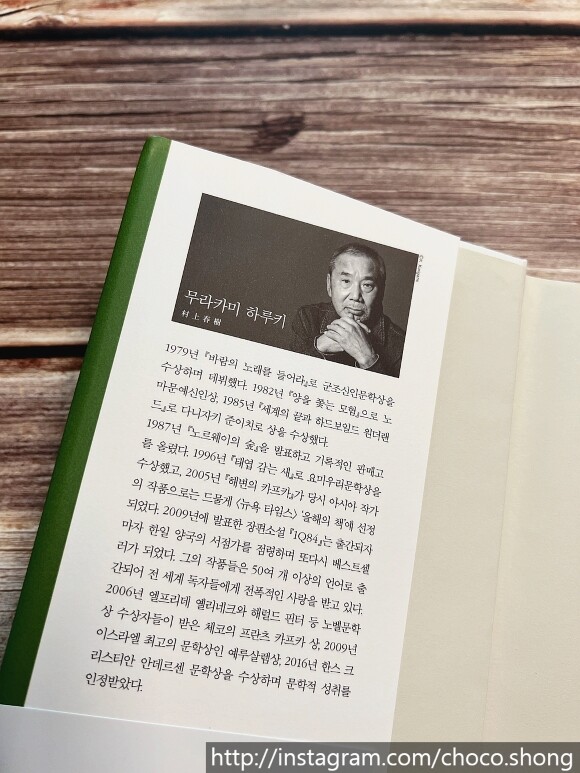 무라카미 하루키
村上春樹
1979년 『바람의 노래를 들어라』로 군조신인문학상을
수상하며 데뷔했다. 1982년 『양을 쫓는 모험』으로 노
마문예신인상, 1985년 『세계의 끝과 하드보일드 원더랜
드』로 다니자키 준이치로 상을 수상했다.
1987년 『노르웨이의 숲』을 발표하고 기록적인 판매고
를 올렸다. 1996년 『태엽 감는 새』로 요미우리문학상을
수상했고, 2005년 『해변의 카프카』가 당시 아시아 작가
의 작품으로는 드물게 〈뉴욕 타임스〉 '올해의 책'에 선정
되었다. 2009년에 발표한 장편소설 『1Q84』는 출간되자
마자 한일 양국의 서점가를 점령하며 또다시 베스트셀
러가 되었다. 그의 작품들은 50여 개 이상의 언어로 출
간되어 전 세계 독자들에게 전폭적인 사랑을 받고 있다.
2006년 엘프리데 옐리네크와 해럴드 핀터 등 노벨문학
상 수상자들이 받은 체코의 프란츠 카프카 상, 2009년
이스라엘 최고의 문학상인 예루살렘상, 2016년 한스 크
리스티안 안데르센 문학상을 수상하며 문학적 성취를
인정받았다.
http://instagram.com/choco.shong